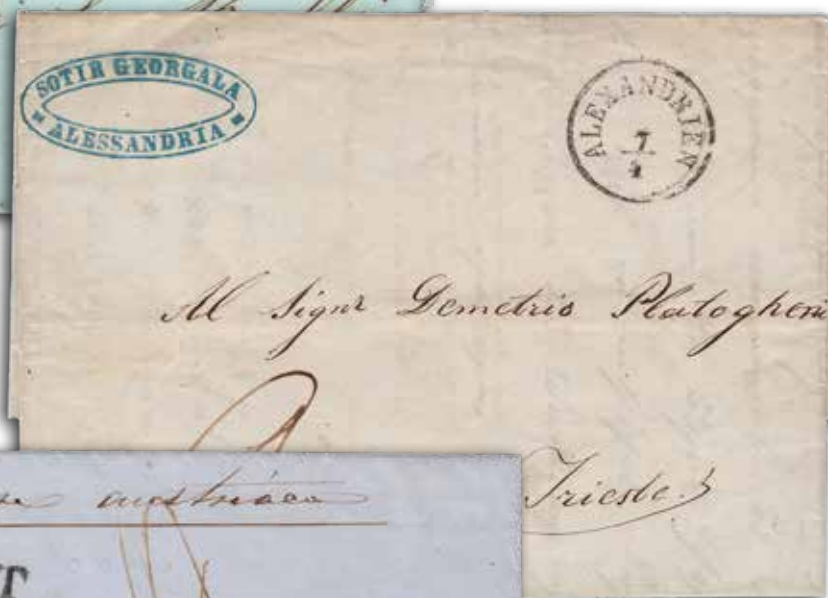 SOTIR GEORGALA
ALESSANDRIA
ALEXANDRIEN
7
4
Al Sigr Demetrio
Trieste
austriaca